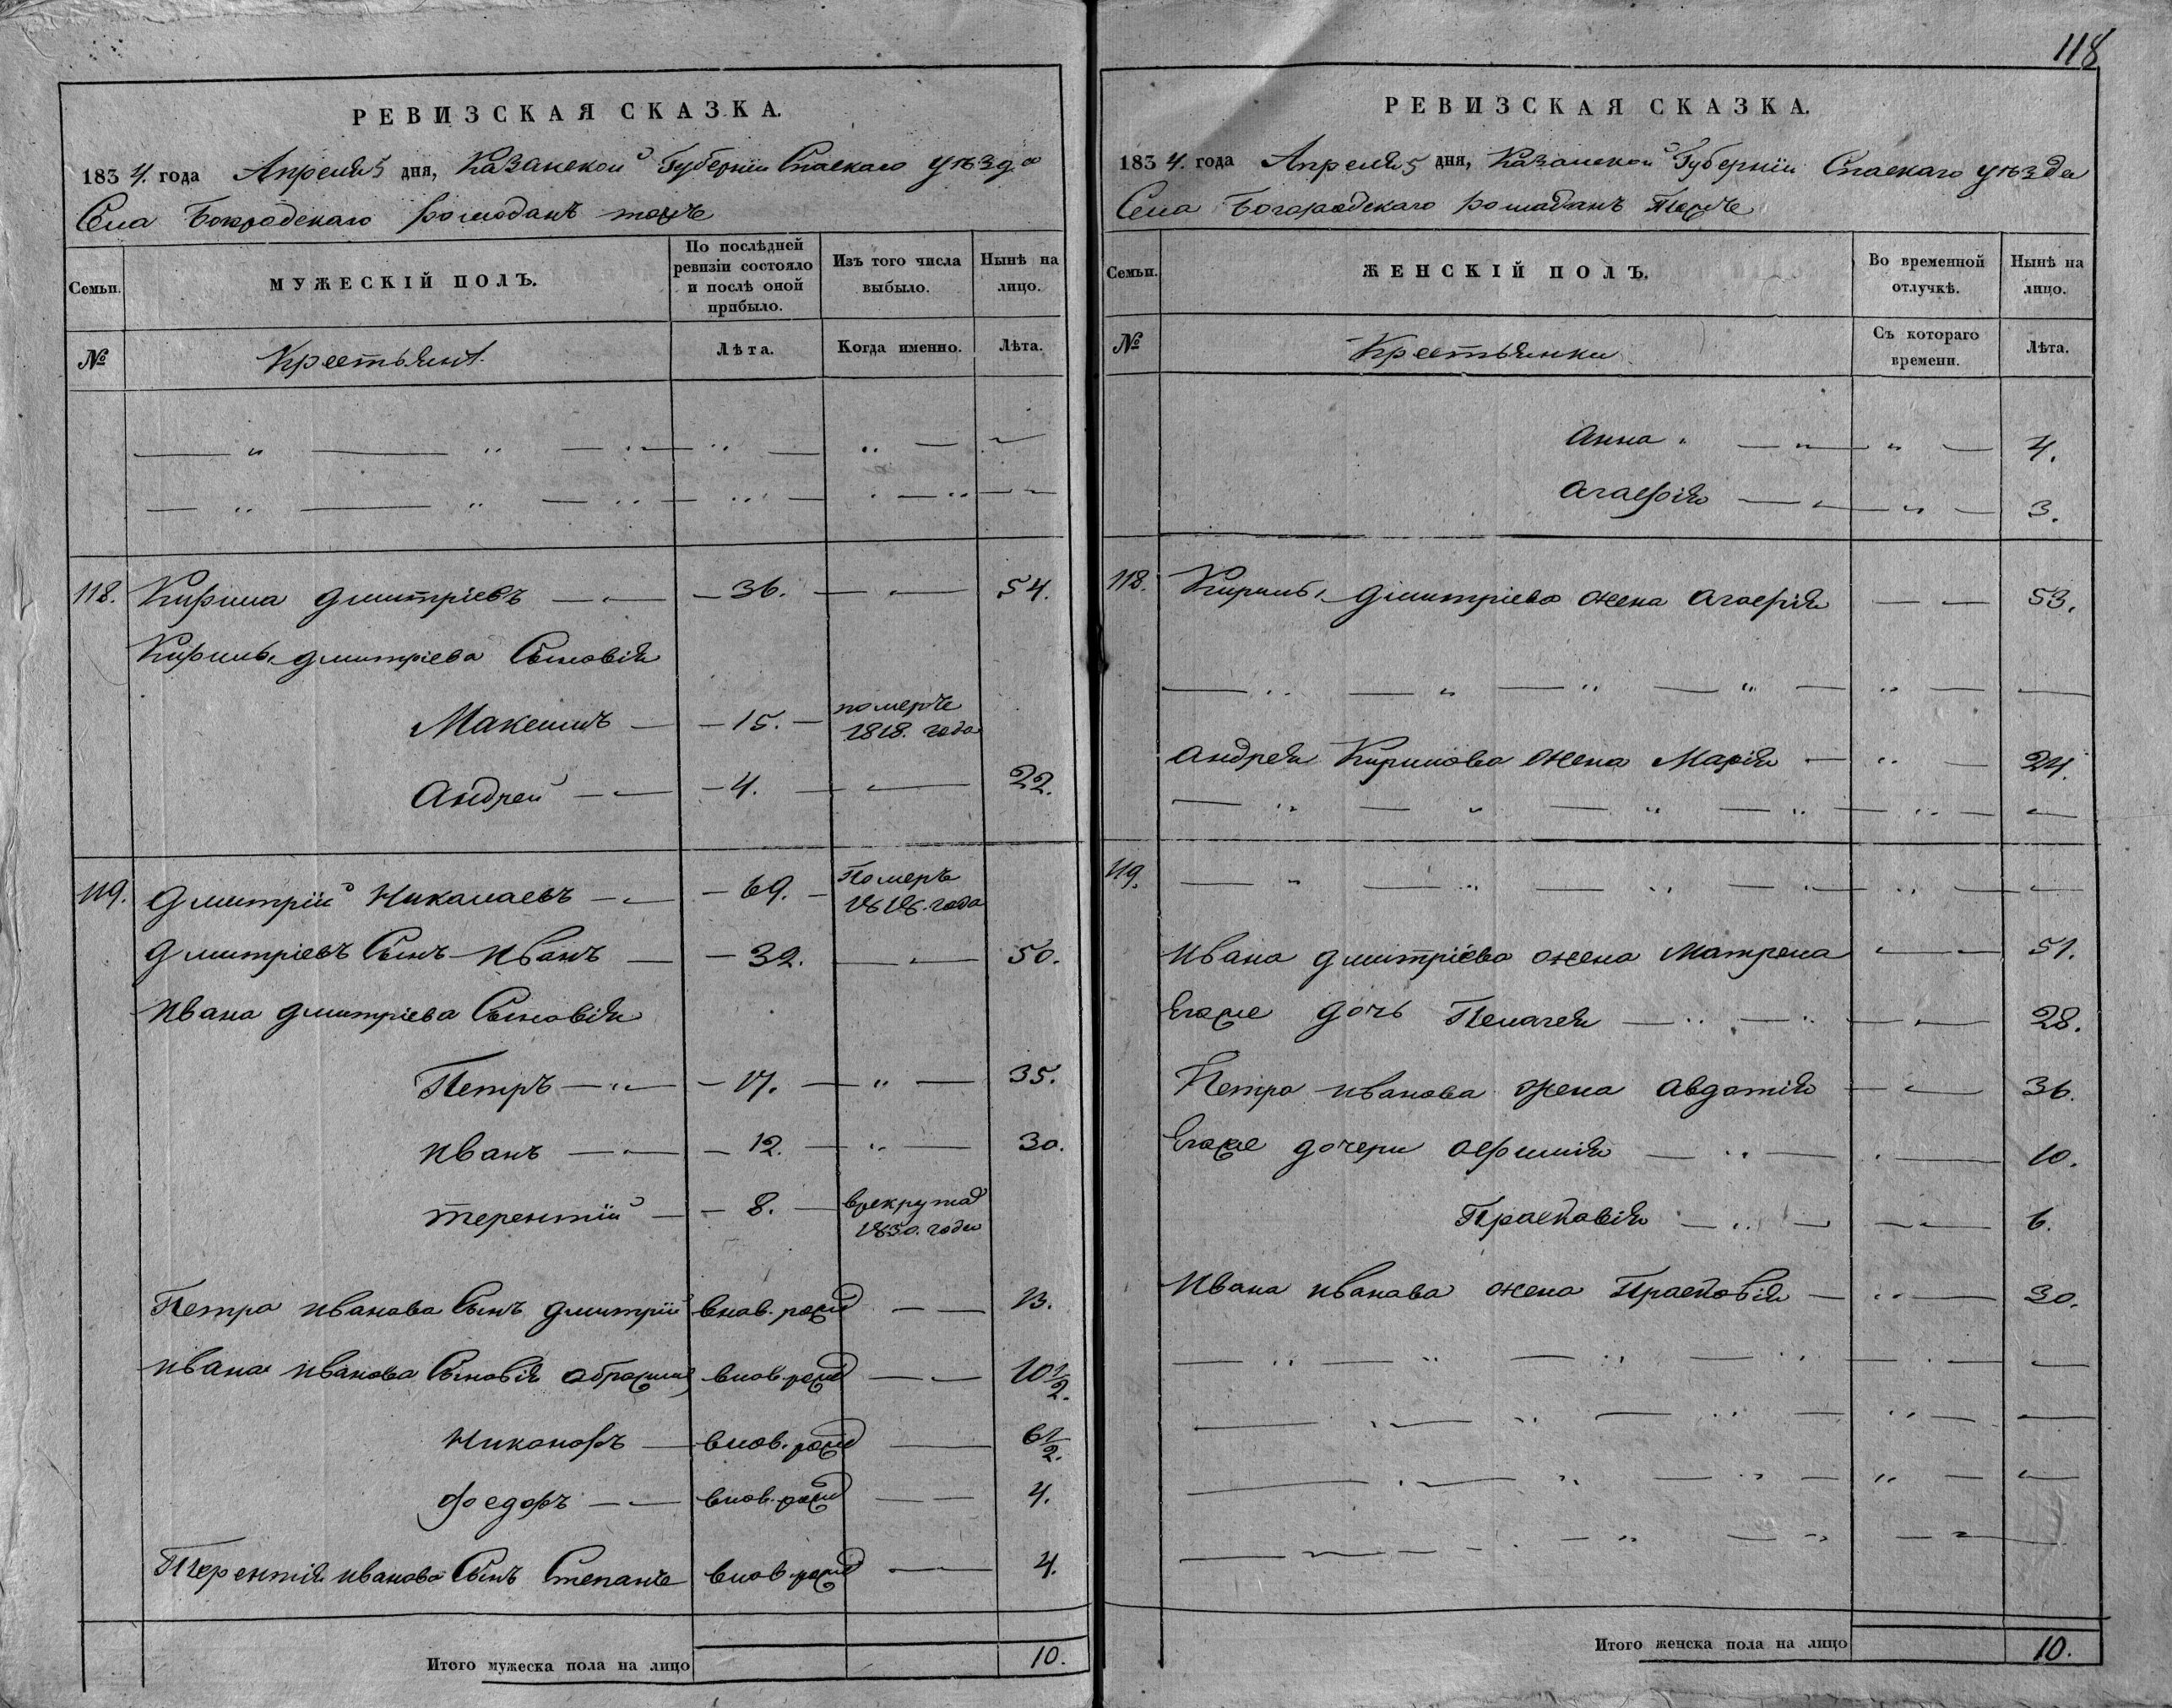 РЕВИЗСКАЯ СКАЗКА.
1834. года Апреля 5 дня, Казанской Губернии Спаскаго уѣзда
Села Богородскаго Ромодакъ тожъ
Семьи.
МУЖЕСКІЙ ПОЛЪ.
По послѣдней ревизіи состояло и послѣ оной прибыло.
Изъ того числа выбыло.
Нынѣ на лицо.
№
Крестьянъ.
Лѣта.
Когда именно.
Лѣта.
118. Кирила Дмитріевъ 36. 54.
Кирилы Дмитріева Сыновія
Максимъ 15. померъ 1818. года
Андрей 4. 22.
119. Дмитрій Никалаевъ 69. Померъ 1818. года
Дмитріевъ Сынъ Иванъ 32. 50.
Ивана Дмитріева Сыновія
Петръ 17. 35.
Иванъ 12. 30.
Терентій 8. врекрута 1830. года
Петра Иванова Сынъ Дмитрій внов. рожд 13.
Ивана Иванова Сыновія Абрамъ внов. рожд 10 1/2.
Никоноръ внов. рожд 6 1/2.
Федоръ внов. рожд 4.
Терентія Иванова Сынъ Степанъ внов. рожд 4.
Итого мужеска пола на лицо 10.
118
РЕВИЗСКАЯ СКАЗКА.
1834. года Апреля 5 дня, Казанской Губерніи Спаскаго уѣзда
Села Богородскаго Ромаданъ Тожъ
Семьи.
ЖЕНСКІЙ ПОЛЪ.
Во временной отлучкѣ.
Нынѣ на лицо.
№
Крестьянки
Съ котораго времени.
Лѣта.
Анна 4.
Агафія 3.
118. Кирилы Дмитріева жена Агафія 53.
Андрея Кирилова жена Марія 24.
119.
Ивана Дмитріева жена Матрена 51.
Егоже дочь Пелагея 28.
Петра Иванова жена Авдотія 36.
Егоже дочери Афимія 10.
Прасковія 6.
Ивана Иванава жена Прасковія 30.
Итого женска пола на лицо 10.